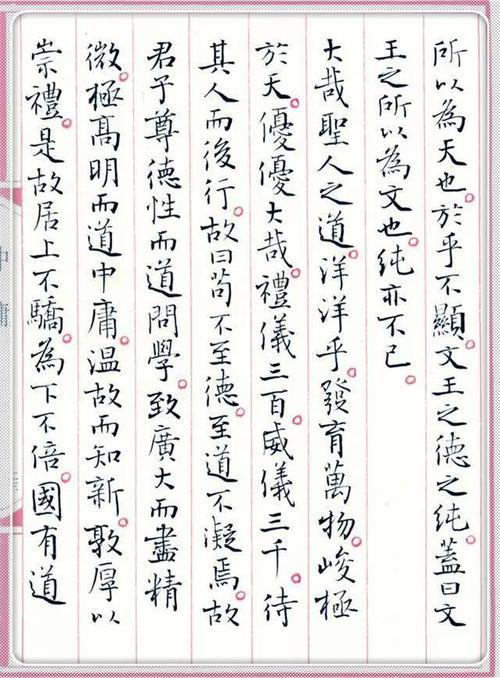 所以為天也。於乎不顯。文王之德之純。蓋曰文
王之所以為文也。純亦不已。
大哉聖人之道。洋洋乎。發育萬物。峻極
於天。優優大哉。禮儀三百。威儀三千。待
其人而後行。故曰苟不至德。至道不凝焉。故
君子尊德性而道問學。致廣大而盡精
微。極高明而道中庸。溫故而知新。敦厚以
崇禮。是故居上不驕。為下不倍。國有道
中庸